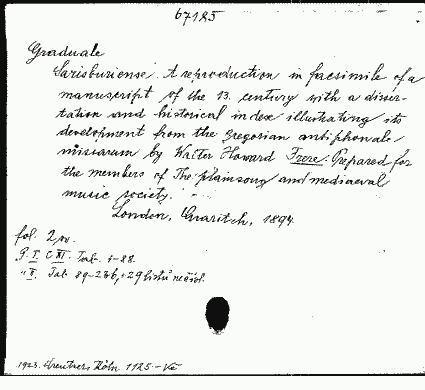 67125
Graduale
Sarisburiense. A reproduction in facsimile of a
manuscript of the 13. century with a disser-
tation and historical index illustrating its
development from the gregorian antiphonale
missarum by Walter Howard Frere. Prepared for
the members of The plainsong and mediaeval
music society.
London, Quaritch, 1894.
fol. 2 sv.
P. I. C III. Tab. 1-88.
" II. Tab. 89-286, + 29 listů nečísl.
1923. Kreutzer, Köln 1125.-Kč